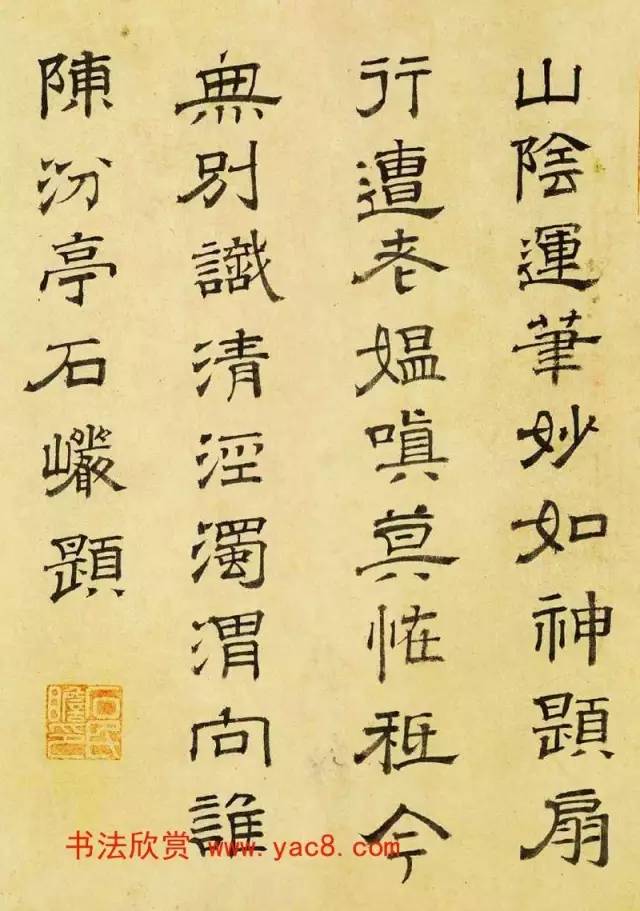 山陰運筆妙如神題扇
行遭老媼嗔莫恠秖今
無別識清涇濁渭向誰
陳汾亭石巖題
石民瞻印
书法欣赏 www.yac8.com